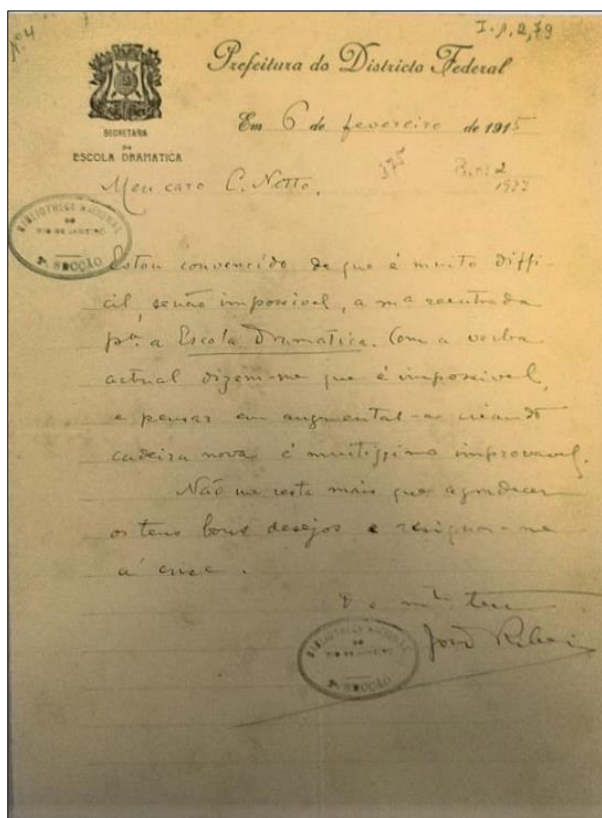 Nº 4
I-1,2,79
Prefeitura do Districto Federal
SECRETARIA
DA
ESCOLA DRAMATICA
Em 6 de fevereiro de 1915
Meu caro C. Netto.
375
2
1922
BIBLIOTHECA NACIONAL
DO
RIO DE JANEIRO
SECÇÃO
Estou convencido de que é muito diffi-
cil, senão impossivel, a mª reentrada
pª a Escola Dramatica. Com a verba
actual dizem-me que é impossivel,
e pensar em augmental-a creando
cadeira nova é muitissimo improvavel.
Não me resta mais que agradecer
os teus bons desejos e resignar-me
á crise.
Do mto teu
João Ribeiro
BIBLIOTHECA NACIONAL
RIO DE JANEIRO
SECÇÃO